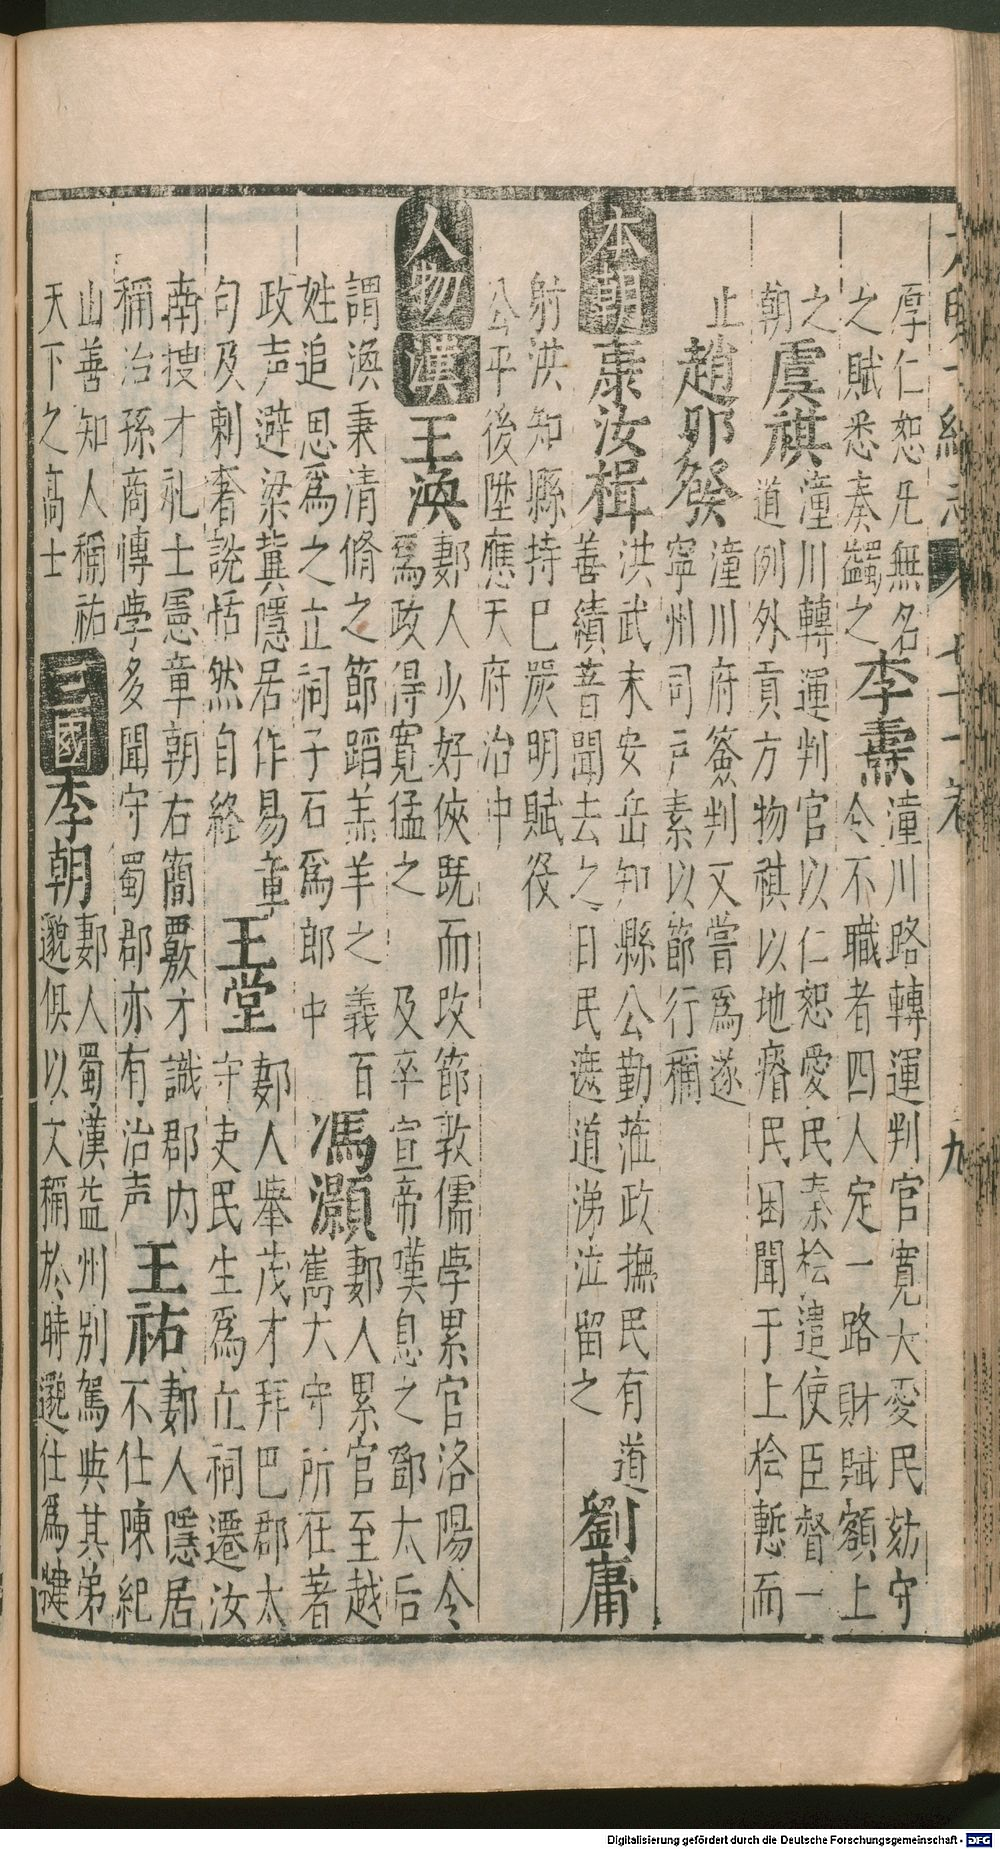 厚仁恕凡無名
之賦悉奏蠲之
李燾
潼川路轉運判官寬大愛民劾守
令不職者四人定一路財賦額上
之
朝
虞祺
潼川轉運判官以仁恕愛民秦桧遣使臣督一
道例外貢方物祺以地瘠民困聞于上桧慙而
止
趙卯發
潼川府簽判又嘗爲遂
寧州司户素以節行稱
本朝
康汝楫
洪武末安岳知縣公勤蒞政撫民有道
善績著聞去之日民遮道涕泣留之
劉庸
射洪知縣持己嚴明賦役
公平後陞應天府治中
人物
漢
王渙
郪人少好俠既而改節敦儒學累官洛陽令
爲政得寬猛之
及卒宣帝嘆息之鄧太后
謂渙秉清脩之節蹈羔羊之義百
姓追思爲之立祠子石爲郎中
馮灝
郪人累官至越
雋大守所在著
政声避梁冀隱居作易童
句及刺奢說恬然自終
王堂
郪人舉茂才拜巴郡太
守吏民生爲立祠遷汝
南搜才礼士憲章朝右簡覈才識郡内
稱治孫商愽學多聞守蜀郡亦有治声
王祐
郪人隱居
不仕陳紀
山善知人稱祐
天下之高士
三國
李朝
郪人蜀漢益州別駕與其弟
邈俱以文稱於時邈仕爲犍
九
Digitalisierung gefördert durch die Deutsche Forschungsgemeinschaft - DFG